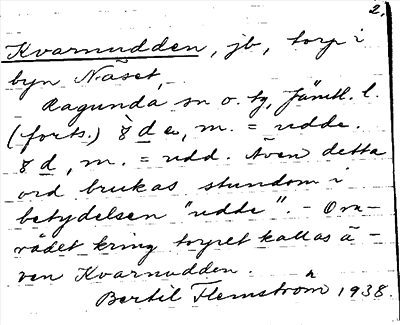 2.
Kvarnudden, jb, torp i
byn Näset,
Ragunda sn o. tg, Jämtl. l.
(forts.) d e, m. = udde.
d, m. = udd. Även detta
ord brukas stundom i
betydelsen "udde". - Om-
rådet kring torpet kallas ä-
ven Kvarnudden.
Bertil Flemström 1938.